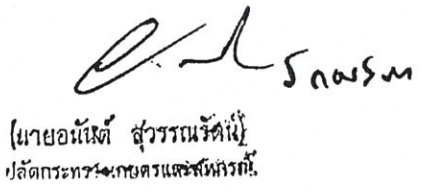 (นายอนันต์ สุวรรณรัตน์)
ปลัดกระทรวงเกษตรและสหกรณ์